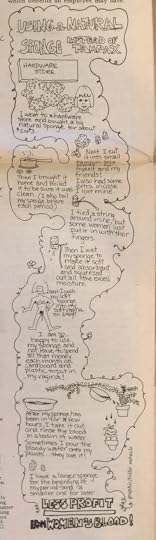 which benefits an employee may have
USING A NATURAL
SPONGE INSTEAD OF
TAMPAX
HARDWARE
STORE
I went to a hardware
store and bought a big
natural sponge for about
Then I brought it
home and boiled
it to be sure it was
clean. (I also boil
my sponge before
each period.)
Next I cut
it into small
for
myself and my
friends!
I also had some
extra, in case
I lost mine.
I tied a string
around mine, but
some women just
put it in with their
fingers.
Then I wet
my sponge to
make it soft
and absorbent
and squeezed
out all the excess
moisture.
and I put
my soft
sponge
into my
soft vagina
so easy!
I am
happy to use
my sponge and
not have to spend
all that money
each month on
cardboard and
plastic, to put in
my vagina!
After my sponge has
been in for a few
hours, I take it out
and rinse the blood
in a basin of water.
Sometimes I pour the
bloody water onto my
plants - they love it!
I have a larger sponge
for the beginning of
my period and a
smaller one for later
LESS PROFIT
FROM WOMEN'S BLOOD!